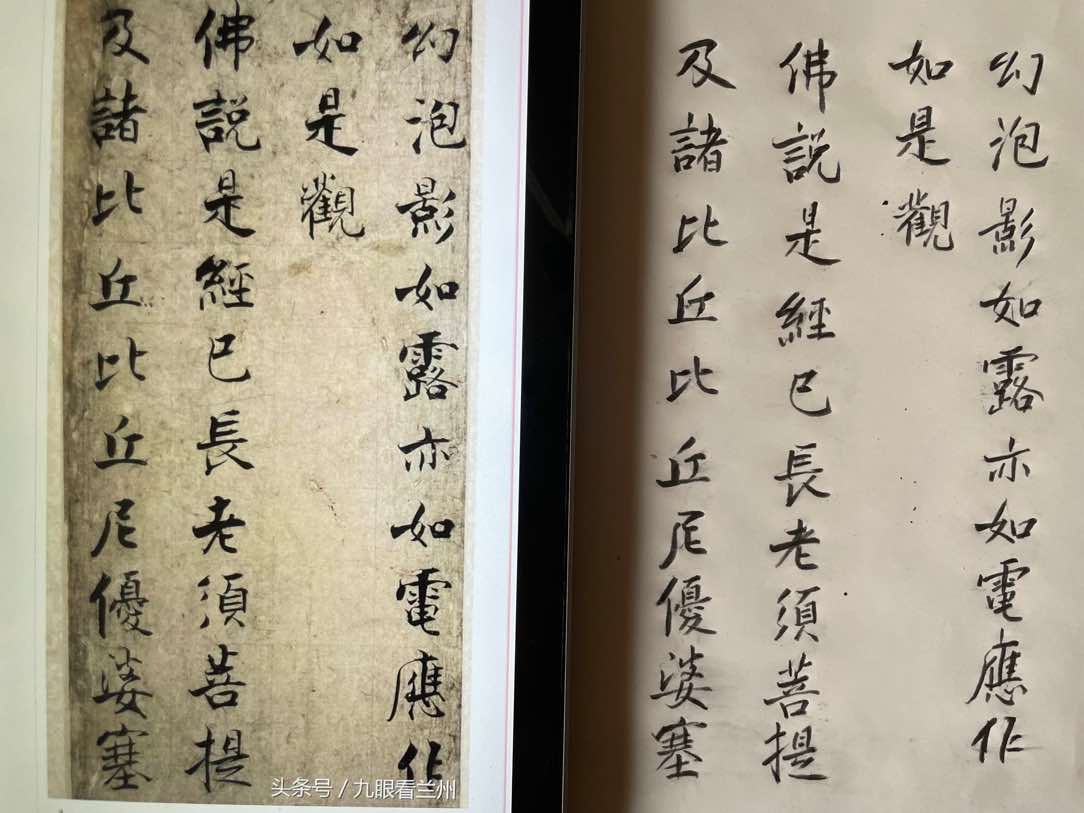 幻泡影如露亦如電應作
如是觀
佛説是經已長老須菩提
及諸比丘比丘尼優婆塞
幻泡影如露亦如電應作
如是觀
佛説是經已長老須菩提
及諸比丘比丘尼優婆塞
头条号／九眼看兰州